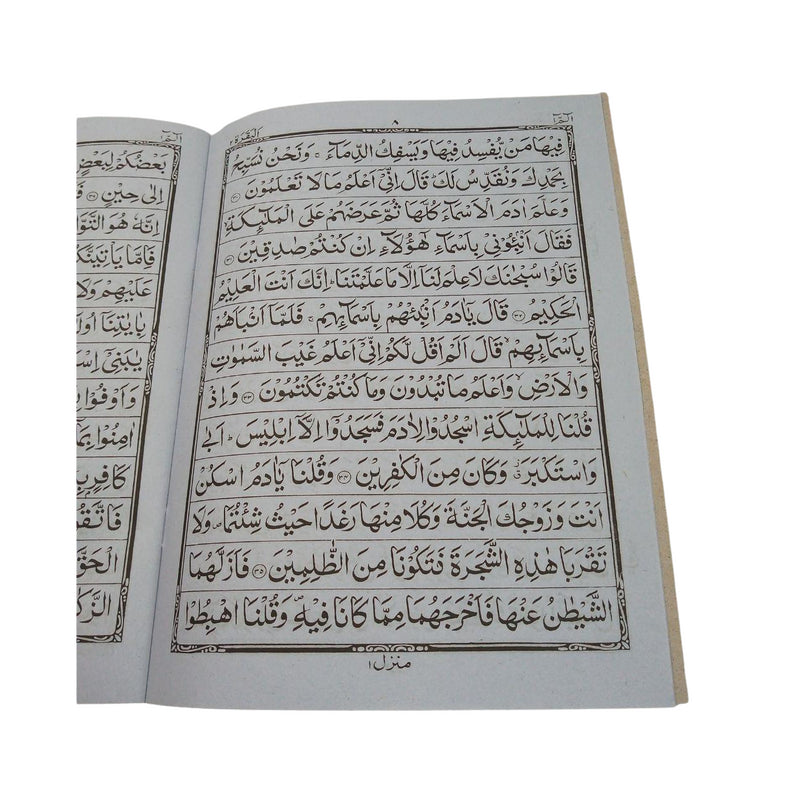 الٓمّٓ ١
٨
البقرة ٢
فِيْهَا مَنْ يُّفْسِدُ فِيْهَا وَيَسْفِكُ الدِّمَآءَ ۚ وَنَحْنُ نُسَبِّحُ
بِحَمْدِكَ وَنُقَدِّسُ لَكَ ؕ قَالَ اِنِّيْٓ اَعْلَمُ مَا لَا تَعْلَمُوْنَ ﴿۳۰﴾
وَعَلَّمَ اٰدَمَ الْاَسْمَآءَ كُلَّهَا ثُمَّ عَرَضَهُمْ عَلَى الْمَلٰٓئِكَةِ ۙ
فَقَالَ اَنْۢبِـُٔوْنِيْ بِاَسْمَآءِ هٰٓؤُلَآءِ اِنْ كُنْتُمْ صٰدِقِيْنَ ﴿۳۱﴾
قَالُوْا سُبْحٰنَكَ لَا عِلْمَ لَنَآ اِلَّا مَا عَلَّمْتَنَا ؕ اِنَّكَ اَنْتَ الْعَلِيْمُ
الْحَكِيْمُ ﴿۳۲﴾ قَالَ يٰٓاٰدَمُ اَنْۢبِئْهُمْ بِاَسْمَآئِهِمْ ۚ فَلَمَّآ اَنْۢبَاَهُمْ
بِاَسْمَآئِهِمْ ۙ قَالَ اَلَمْ اَقُلْ لَّكُمْ اِنِّيْٓ اَعْلَمُ غَيْبَ السَّمٰوٰتِ
وَالْاَرْضِ ۙ وَاَعْلَمُ مَا تُبْدُوْنَ وَمَا كُنْتُمْ تَكْتُمُوْنَ ﴿۳۳﴾ وَاِذْ
قُلْنَا لِلْمَلٰٓئِكَةِ اسْجُدُوْا لِاٰدَمَ فَسَجَدُوْٓا اِلَّآ اِبْلِيْسَ ؕ اَبٰى
وَاسْتَكْبَرَ ۫ وَكَانَ مِنَ الْكٰفِرِيْنَ ﴿۳۴﴾ وَقُلْنَا يٰٓاٰدَمُ اسْكُنْ
اَنْتَ وَزَوْجُكَ الْجَنَّةَ وَكُلَا مِنْهَا رَغَدًا حَيْثُ شِئْتُمَا ۪ وَلَا
تَقْرَبَا هٰذِهِ الشَّجَرَةَ فَتَكُوْنَا مِنَ الظّٰلِمِيْنَ ﴿۳۵﴾ فَاَزَلَّهُمَا
الشَّيْطٰنُ عَنْهَا فَاَخْرَجَهُمَا مِمَّا كَانَا فِيْهِ ۪ وَقُلْنَا اهْبِطُوْا
منزل ١
الٓمّٓ ١
بَعْضُكُمْ لِبَعْضٍ
اِلٰى حِيْنٍ ﴿۳۶﴾
اِنَّهٗ هُوَ التَّوَّ
فَاِمَّا يَاْتِيَنَّكُ
عَلَيْهِمْ وَلَا
بِاٰيٰتِنَآ اُولٰٓ
يٰبَنِيْٓ اِسْ
وَاَوْفُوْا
اٰمِنُوْا بِمَآ
كَافِرٍۭ بِ
فَاتَّقُ
الْحَقَّ
الزَّكٰ